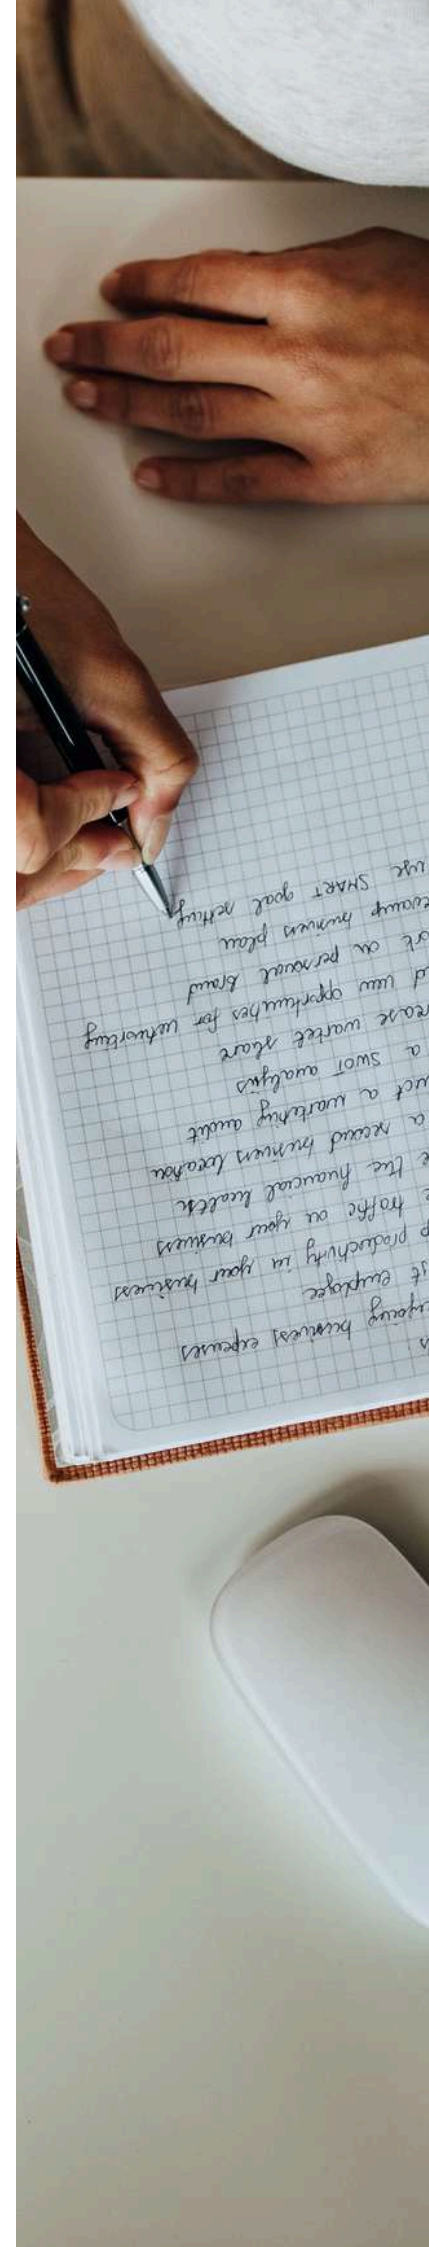 going business expenses
st employee
p productivity in your business
e traffic on your business
e the financial health
a second business location
uct a marketing audit
a SWOT analysis
rease market share
d new opportunities for networking
ork on personal brand
evamp business plan
use SMART goal setting